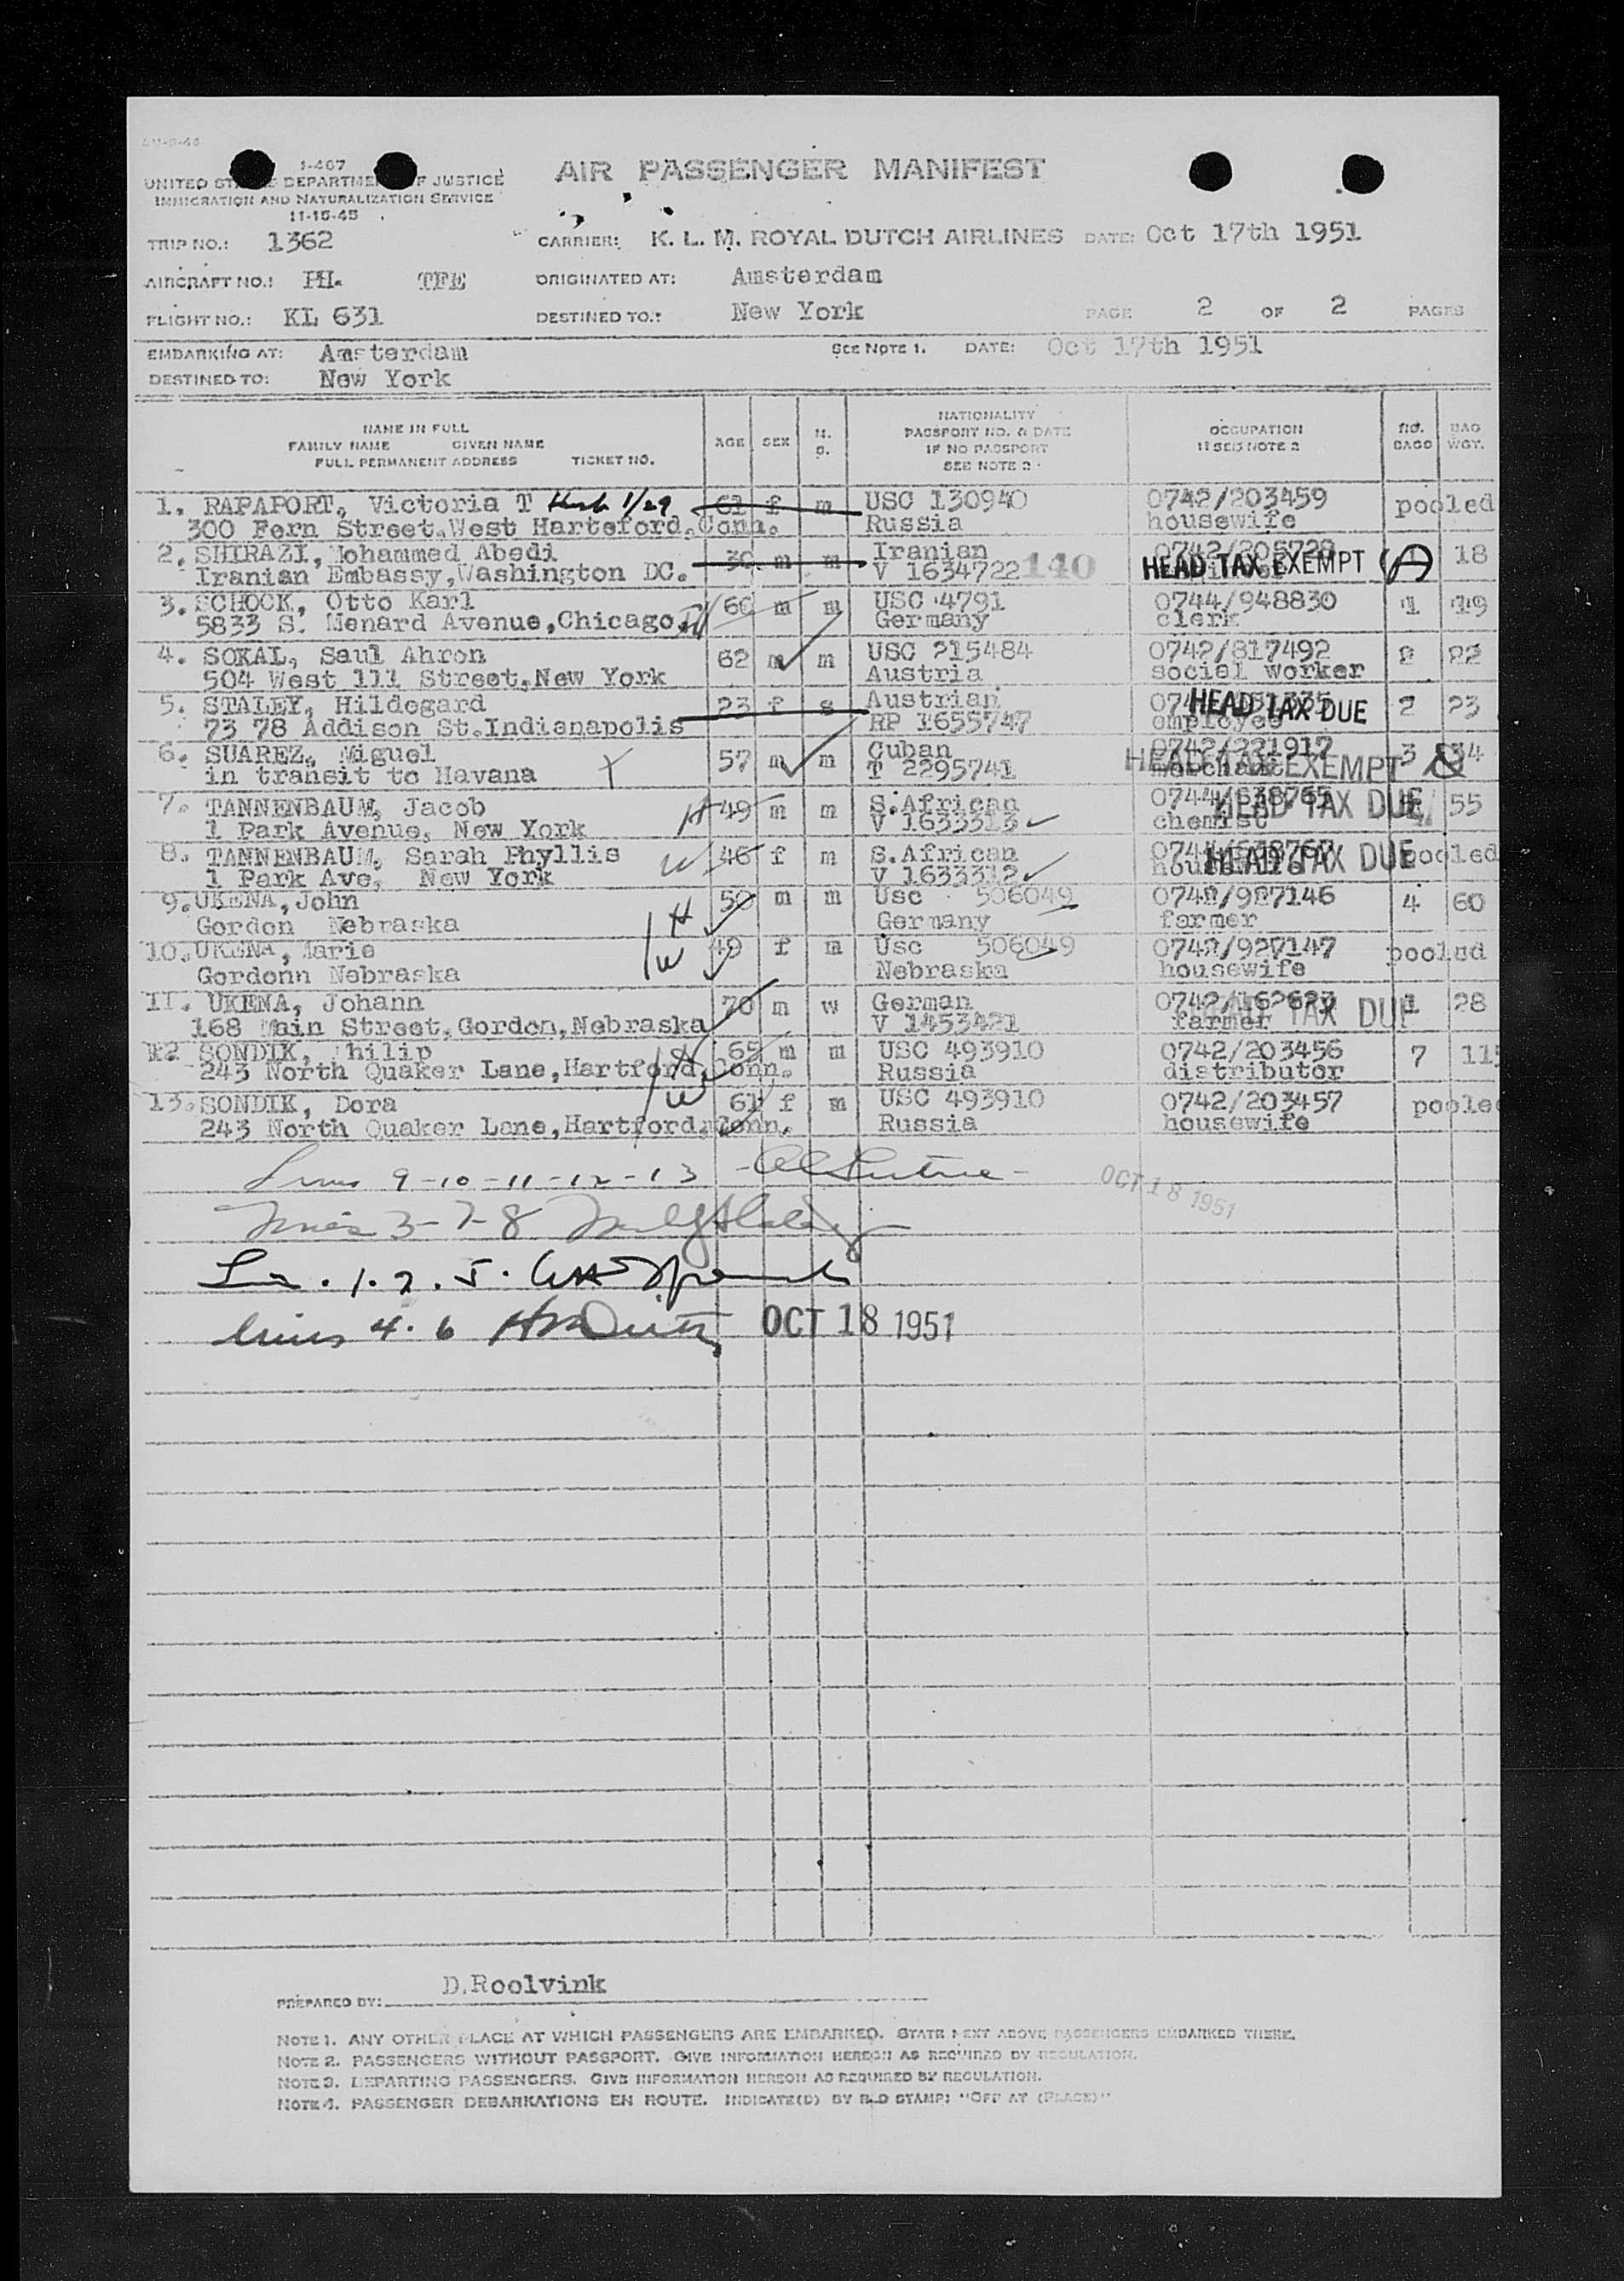 1-467
UNITED STATES DEPARTMENT OF JUSTICE
IMMIGRATION AND NATURALIZATION SERVICE
11-15-45
AIR PASSENGER MANIFEST
TRIP NO.: 1362 CARRIER: K. L. M. ROYAL DUTCH AIRLINES DATE: Oct 17th 1951
AIRCRAFT NO.: PH. TFE ORIGINATED AT: Amsterdam
FLIGHT NO.: KL 631 DESTINED TO: New York PAGE 2 OF 2 PAGES
EMBARKING AT: Amsterdam SEE NOTE 1. DATE: Oct 17th 1951
DESTINED TO: New York
NAME IN FULL
FAMILY NAME GIVEN NAME
FULL PERMANENT ADDRESS TICKET NO.
AGE SEX M. S.
NATIONALITY
PASSPORT NO. & DATE
IF NO PASSPORT
SEE NOTE 2
OCCUPATION
SEE NOTE 2
NO. BAGS
BAG WGT.
1. RAPAPORT, Victoria T 1/29 61 f m USC 130940 0742/203459 pooled
300 Fern Street, West Harteford, Conn. Russia housewife
2. SHIRAZI, Mohammed Abedi 30 m m Iranian HEAD TAX EXEMPT A 18
Iranian Embassy, Washington DC. V 1634722 140
3. SCHOCK, Otto Karl 60 m m USC 4791 0744/948830 1 19
5833 S. Menard Avenue, Chicago, Germany clerk
4. SOKAL, Saul Ahron 62 m m USC 215484 0742/817492 2 22
504 West 111 Street, New York Austria social worker
5. STALEY, Hildegard 23 f s Austrian HEAD TAX DUE 2 23
73 78 Addison St.Indianapolis RP 1655747 employee
6. SUAREZ, Miguel 57 m m Cuban 0742/221917 3 34
in transit to Havana T 2295741 merchant HEAD TAX EXEMPT
7. TANNENBAUM, Jacob H 49 m m S.African HEAD TAX DUE 55
1 Park Avenue, New York V 1633313 chemist
8. TANNENBAUM, Sarah Phyllis W 46 f m S.African HEAD TAX DUE pooled
1 Park Ave, New York V 1633312
9. UKENA, John H 50 m m Usc 506049 0742/927146 4 60
Gordon Nebraska Germany farmer
10. UKENA, Marie W 49 f m Usc 506049 0742/927147 pooled
Gordonn Nebraska Nebraska housewife
11. UKENA, Johann 70 m w German 0742/162623 1 28
168 Main Street, Gordon, Nebraska V 1453421 farmer HEAD TAX DUE
12 SONDIK, Philip H 65 m m USC 493910 0742/203456 7 115
243 North Quaker Lane, Hartford, Conn. Russia distributor
13. SONDIK, Dora W 61 f m USC 493910 0742/203457 pooled
243 North Quaker Lane, Hartford, Conn. Russia housewife
Lines 9-10-11-12-13 OCT 18 1951
Lines 3-7-8
Ln. 1. 2. 5.
lines 4. 6 OCT 18 1951
PREPARED BY: D.Roolvink
NOTE 1. ANY OTHER PLACE AT WHICH PASSENGERS ARE EMBARKED. STATE NEXT ABOVE PASSENGERS EMBARKED THERE.
NOTE 2. PASSENGERS WITHOUT PASSPORT. GIVE INFORMATION HEREON AS REQUIRED BY REGULATION.
NOTE 3. DEPARTING PASSENGERS. GIVE INFORMATION HEREON AS REQUIRED BY REGULATION.
NOTE 4. PASSENGER DEBARKATIONS EN ROUTE. INDICATE(D) BY RED STAMP: "OFF AT (PLACE)"